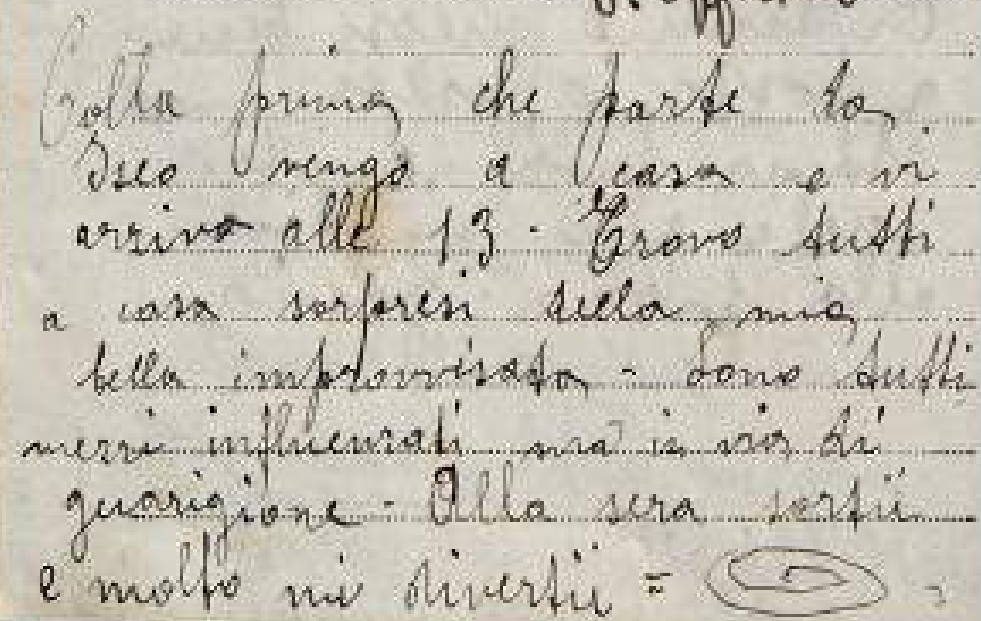 Colla prima che parte da
Iseo vengo a casa e vi
arrivo alle 13 - Trovo tutti
a casa sorpresi della mia
bella improvvisata - Sono tutti
mezzi influenzati ma in via di
guarigione - Alla sera sortii
e molto mi divertii =